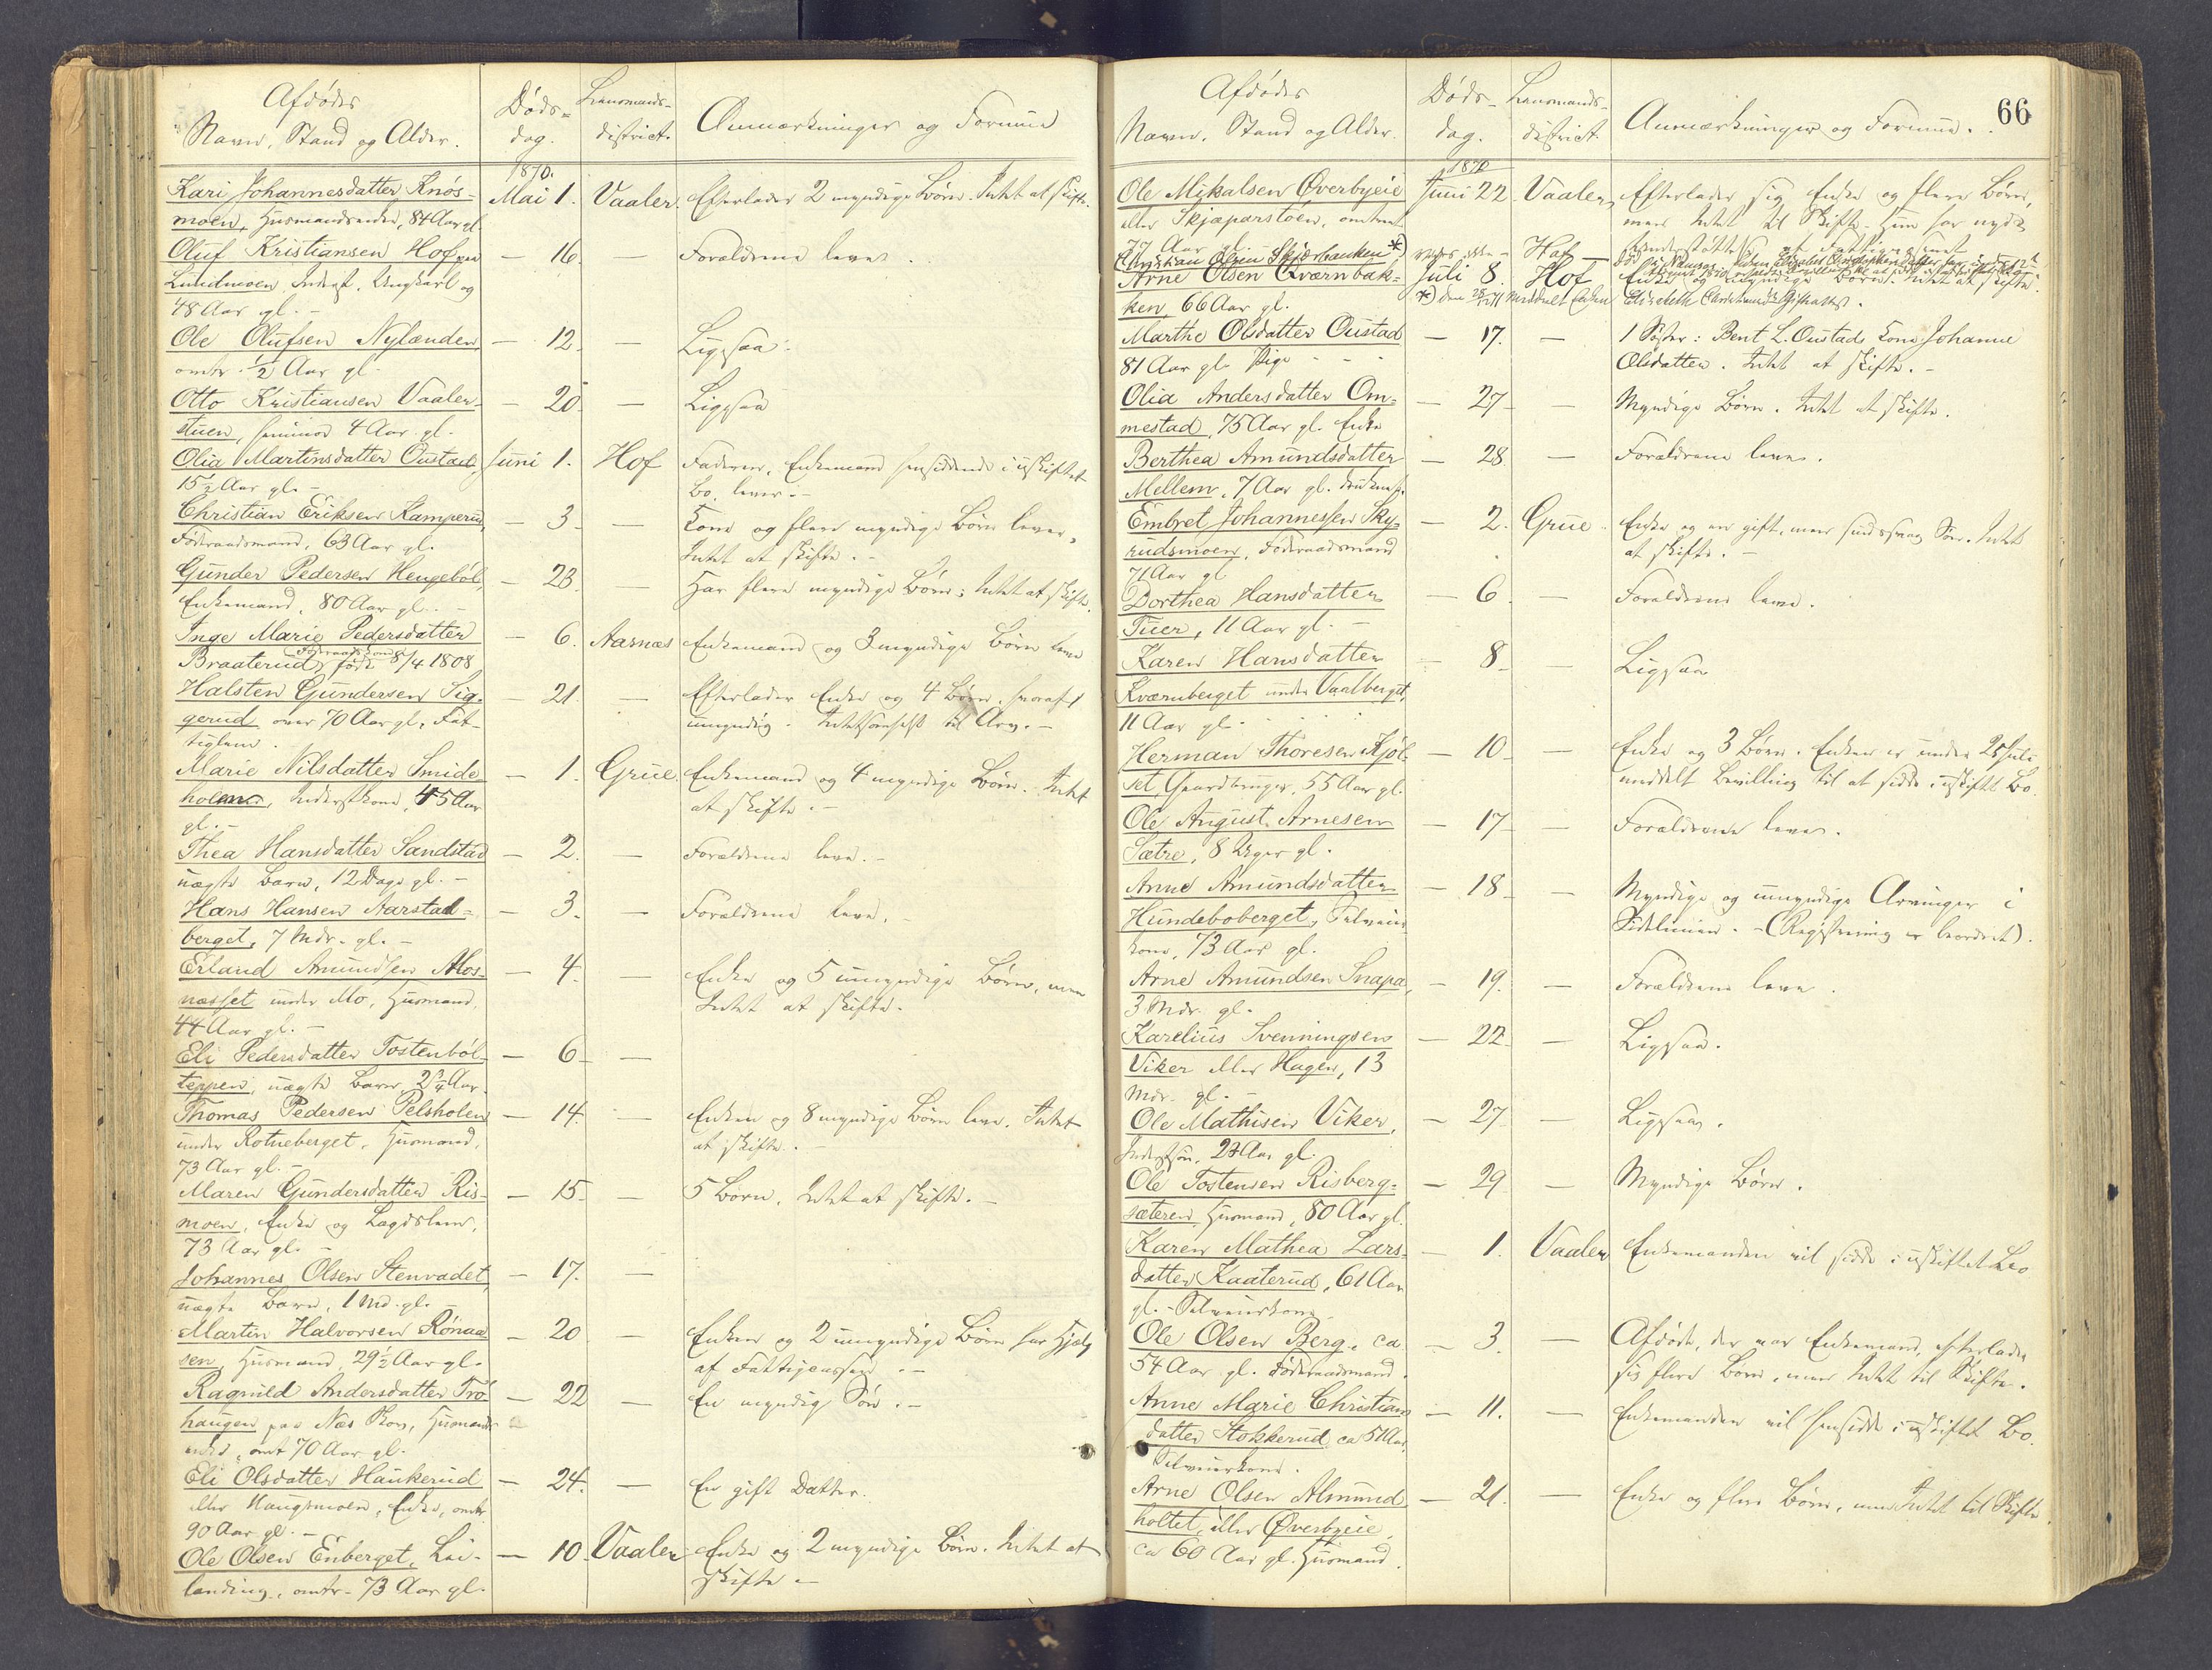 Afdødes
Navn, Stand og Alder.
Døds-
dag.
Lensmands-
district.
Anmærkninger og Formue
1870.
Kari Johannesdatter Knós-
moen, Husmandsenke, 84 Aar gl.
Mai 1. Vaaler. Efterlader 2 myndige Børn. Intet at skifte.
Oluf Kristiansen Hof paa
Lundmoen Inderst. Ungkarl og
48 Aar gl. -
- 16. - Forældrene lever.
Ole Olufsen Nylænden,
omtr. 1/2 Aar gl.
- 12. - Ligesaa.
Otto Kristiansen Vaaler-
stuen, 4 Aar gl.
- 20. - Ligesaa
Olia Martinsdatter Oustad
15 1/2 Aar gl. -
Juni 1. Hof Faderen, Enkemand hensiddende i uskiftet
Bo, lever. -
Christian Eriksen Kamperud,
Føderaadsmand, 63 Aar gl.
- 3. - Kone og flere myndige Børn lever,
Intet at skifte. -
Gunder Pedersen Hengeból,
Enkemand, 80 Aar gl. -
- 23. - Har flere myndige Børn; Intet at skifte.
Inge Marie Pedersdatter
Braaterud, Føderaadskone født 8/4 1808
- 6. Aarnæs Enkemand og 3 myndige Børn leve
Halsten Gundersen Sig-
gerud over 70 Aar gl., Fat-
tiglem.
- 21. - Efterlader Enke og 4 Børn, hvoraf 1
umyndig. til Arv. -
Marie Nilsdatter Smide-
holmen, Inderstkone, 45 Aar
gl. -
- 1. Grue. Enkemand og 4 myndige Børn. Intet
at skifte. -
Thea Hansdatter Sandstad
uægte Barn, 12 Dage gl. -
- 2. - Forældrene leve. -
Hans Hansen Aarstad-
berget, 7 Mdr. gl. -
- 3. - Forældrene leve. -
Erland Amundsen Mos-
næsset under Mo, Husmand,
44 Aar gl. -
- 4. - Enke og 5 umyndige Børn, men
Intet at skifte.
Eli Pedersdatter Tostenból-
teppen, uægte Barn, 2 1/4 Aar.
- 6. -
Thomas Pedersen Pelsholen
under Rotneberget, Husmand,
73 Aar gl. -
- 14. - Enken og 8 myndige Børn leve. Intet
at skifte. -
Maren Gundersdatter Ris-
moen, Enke og Lægdslem,
73 Aar gl. -
- 15. - 5 Børn. Intet at skifte. -
Johannes Olsen Stenvadet,
uægte Barn, 1 Md. gl. -
- 17. -
Martin Halvorsen Rønaa-
sen, Husmand, 29 1/2 Aar gl.
- 20 - Enken og 2 umyndige Børn har Hjælp
af Fattigcassen. -
Ragnild Andersdatter Trø-
haugen paa Næs Skov, Husmands-
enke, omt 70 Aar gl.
- 22 - En myndig Søn. -
Eli Olsdatter Haukerud
eller Haugsmoen, Enke, omtr.
90 Aar gl. -
- 24. - En gift Datter.
Ole Olsen Enberget, Lei-
lending, omtr. 73 Aar gl.
- 10. Vaaler Enke og 2 myndige Børn. Intet at
skifte. -
66
Afdødes
Navn, Stand og Alder.
Døds-
dag.
Lensmands-
district.
Anmærkninger og Formue.
1870
Ole Mikalsen Øverbyeie
eller Skjæparstoen, omtrent
77 Aar gl. -
Juni 22. Vaaler, Efterlader sig Enke og flere Børn,
men Intet til Skifte. Hun har nydt
Understøttelse af Fattigvæsenet
Christian Olsen Skjærbanken *) - Hof -
Arne Olsen Kværnbak-
ken, 66 Aar gl.
Juli 8. Hof Enke og myndige Børn. Intet at skifte.
*) den 28/1 71 meddelt Enken Elisabeth Christensd.
Marthe Olsdatter Oustad
81 Aar gl. Pige
- 17. - 1 Søster: Bent L. Oustads Kone Johanne
Olsdatter. Intet at skifte. -
Olia Andersdatter Om-
mestad, 75 Aar gl. Enke
- 27 - Myndige Børn. Intet at skifte.
Berthea Amundsdatter
Mellem, 7 Aar gl.
- 28. - Forældrene leve.
Embret Johannessen Sky-
rudsmoen, Føderaadsmand
71 Aar gl
- 2. Grue. Enke og en gift, men sindssvag Søn. Intet
at skifte. -
Dorthea Hansdatter
Tuer, 11 Aar gl. -
- 6. - Forældrene leve.
Karen Hansdatter
Kværnberget under Vaalberget,
11 Aar gl.
- 8. - Ligesaa
Herman Thoresen Kjól-
set, Gaardbruger, 55 Aar gl.
- 10. - Enke og 3 Børn. Enken er under 25 Juli
meddelt Bevilling til at sidde i uskiftet Bo.
Ole August Arnesen
Sætre, 8 Uger gl.
- 17 - Forældrene leve.
Anne Amundsdatter
Hundeboberget, Selveier-
kone, 73 Aar gl.
- 18 - Myndige og umyndige Arvinger i
Sidelinien. - (Registrering er beordret).
Arne Amundsen Snapa,
3 Mdr. gl.
- 19. - Forældrene leve.
Karelius Svenningsen
Viker eller Hagen, 13
Mdr. gl. -
- 22. - Ligesaa.
Ole Mathisen Viker,
Inderstsøn, 24 Aar gl.
- 27 - Ligesaa.
Ole Tostensen Risberg-
sæteren, Husmand, 80 Aar gl.
- 29 - Myndige Børn.
Karen Mathea Lars-
datter Kaaterud, 61 Aar
gl. - Selveierkone
- 1. Vaaler Enkemanden vil sidde i uskiftet Bo
Ole Olsen Berg, ca
54 Aar gl. Føderaadsmand.
- 3. - Afdøde, der var Enkemand, efterlader
sig flere Børn, men Intet til Skifte.
Anne Marie Christians-
datter Stokkerud ca 51 Aar,
Selveierkone.
- 11. - Enkemanden vil hensidde i uskiftet Bo.
Arne Olsen Almund-
holtet, eller Øverbyeie,
ca 60 Aar gl. Husmand.
- 21. - Enke og flere Børn, men Intet til Skifte.